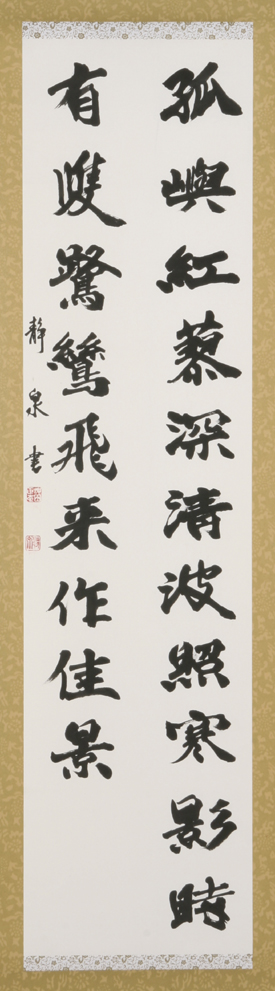 孤嶼紅蓼深清波照寒影時
有雙鷺鷥飛来作佳景
靜泉書